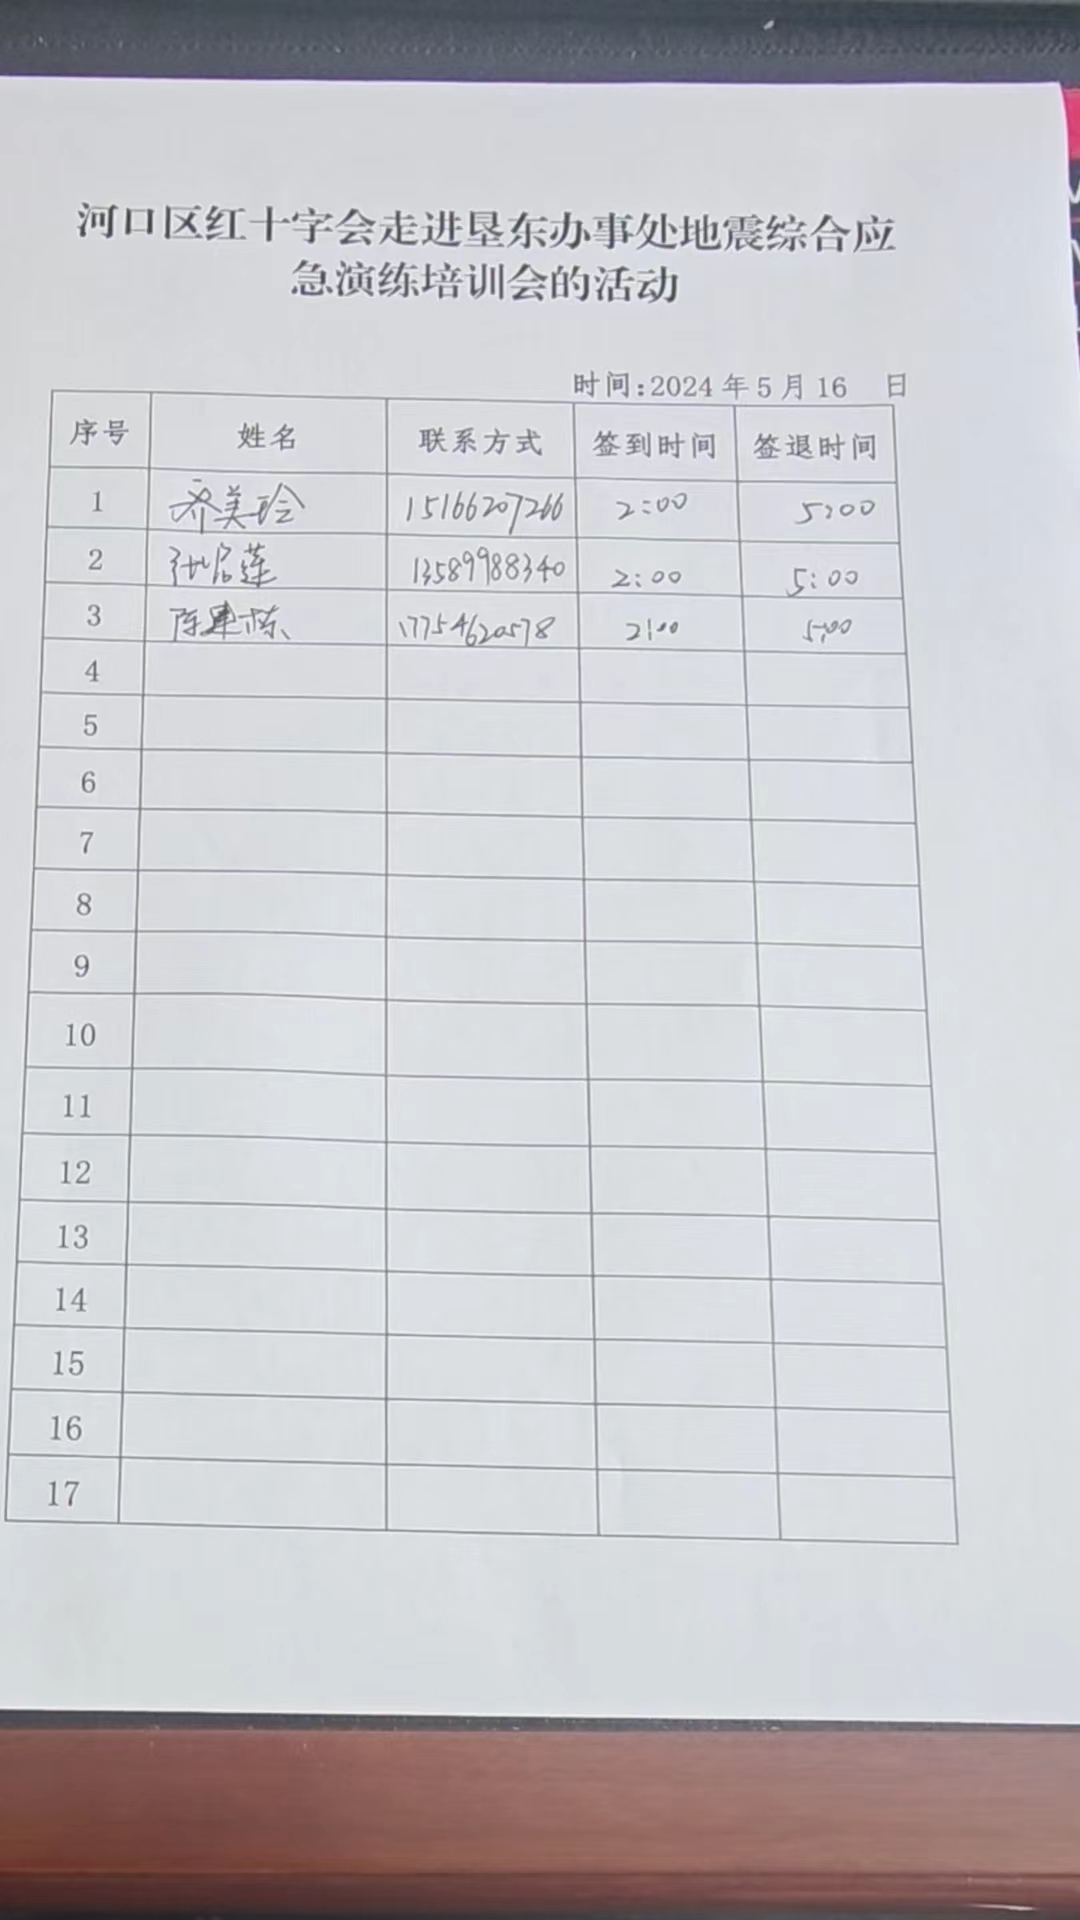 河口区红十字会走进垦东办事处地震综合应
急演练培训会的活动
时间:2024 年 5 月 16 日
序号 姓名 联系方式 签到时间 签退时间
1 乔美玲 15166207266 2:00 5:00
2 13589988340 2:00 5:00
3 陈建栋 17754620578 2:00 5:00
4
5
6
7
8
9
10
11
12
13
14
15
16
17